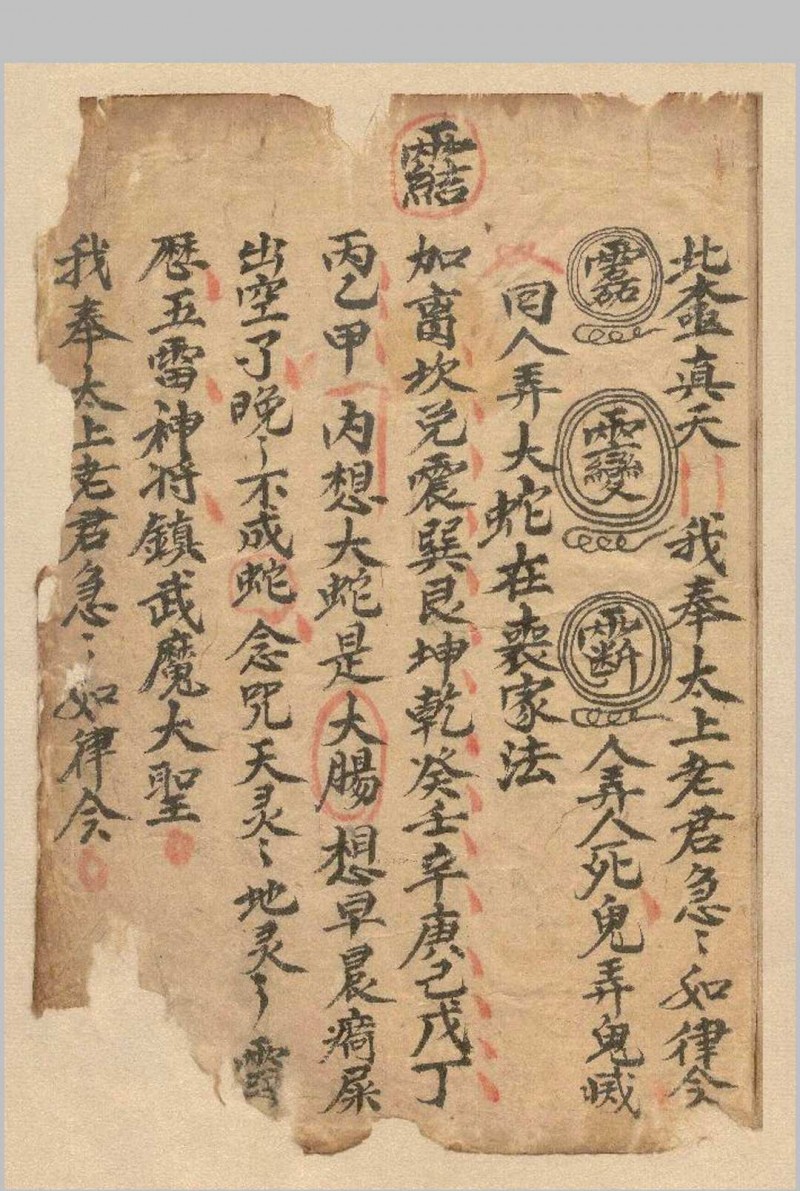 北壺真天 我奉太上老君急〻如律令
人弄人死鬼弄鬼滅
回人弄大蛇在喪家法
加离坎兑震巽艮坤乾癸壬辛庚己戊丁
丙乙甲 内想大蛇是大腸 想早晨屙屎
出空了晚〻不成蛇 念咒天灵〻地灵〻
歷五雷神将鎮武魔大聖
我奉太上老君急〻如律令